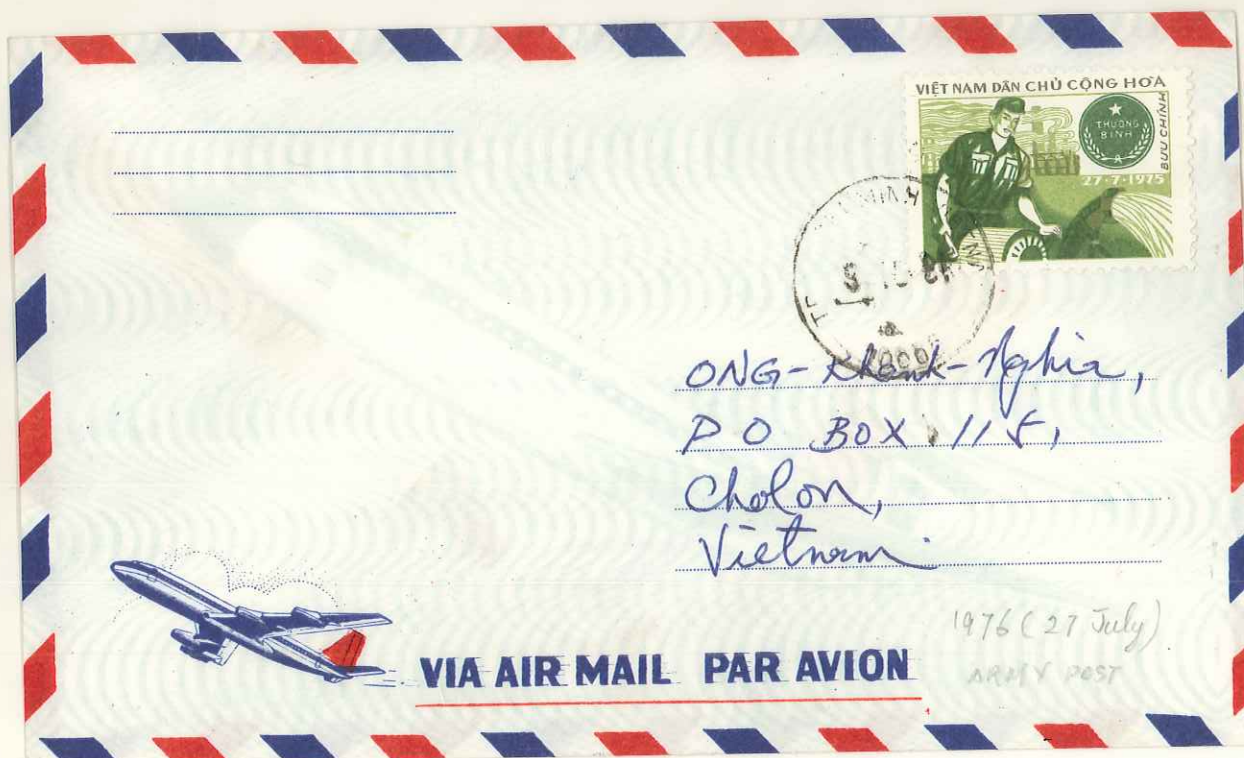 VIỆT NAM DÂN CHỦ CỘNG HÒA
THƯƠNG
BINH
BƯU CHÍNH
27-7-1975
ONG-Khanh-Nghia,
PO BOX 115,
Cholon,
Vietnam.
1976 (27 July)
ARMY POST
VIA AIR MAIL PAR AVION